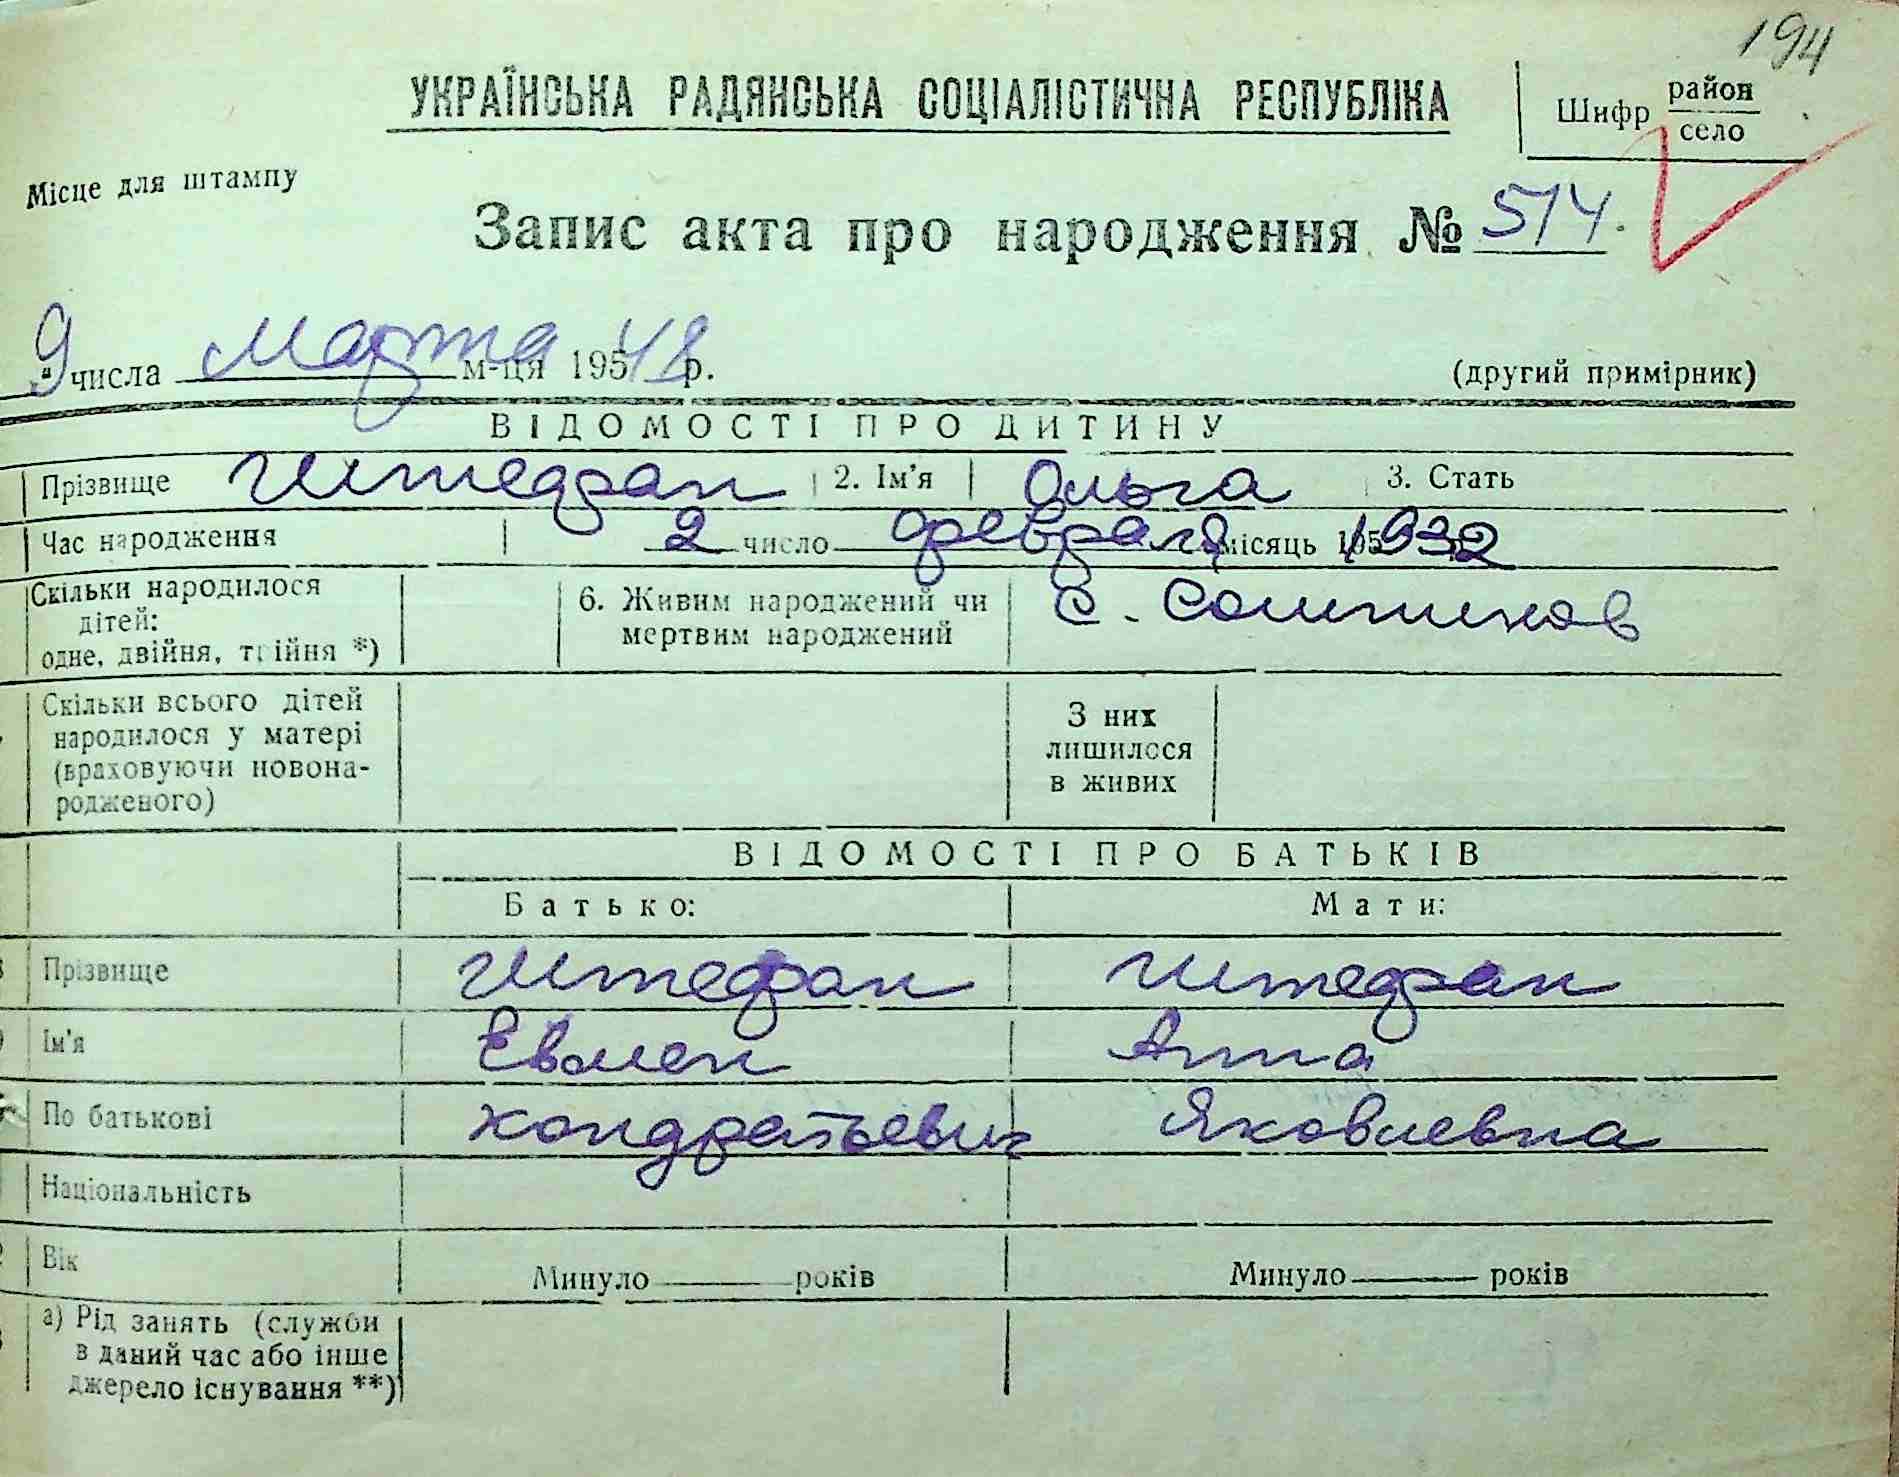 194
УКРАЇНСЬКА РАДЯНСЬКА СОЦІАЛІСТИЧНА РЕСПУБЛІКА
Шифр район
село
Місце для штампу
Запис акта про народження № 514.
9 " числа Марта м-ця 195 48 р.
(другий примірник)
ВІДОМОСТІ ПРО ДИТИНУ
Прізвище Штефан 2. Ім'я Ольга 3. Стать
Час народження 2 число февраля місяць 195 1932
Скільки народилося дітей: одне, двійня, трійня *)
6. Живим народжений чи мертвим народжений
с.
Скільки всього дітей народилося у матері (враховуючи новона-родженого)
З них лишилося в живих
ВІДОМОСТІ ПРО БАТЬКІВ
Батько: Мати:
Прізвище Штефан Штефан
Ім'я Евмен Анна
По батькові Кондратьевич Яковлевна
Національність
Вік Минуло років Минуло років
а) Рід занять (служби
в даний час або інше
джерело існування **)